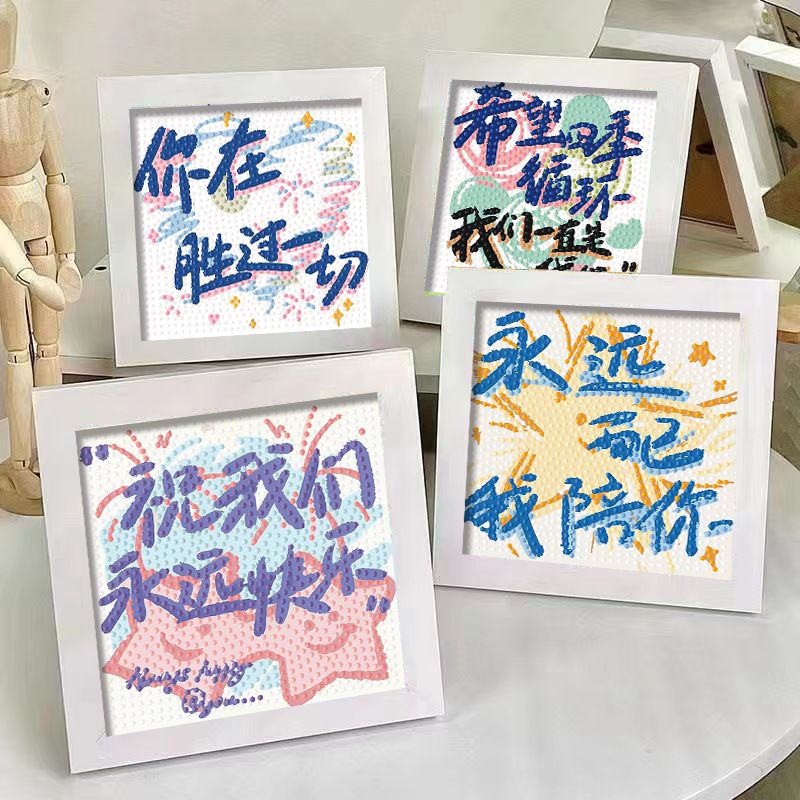 你在
胜过一切
希望四季
循环
我们一直是
永远
有
我陪你
"祝我们
永远快乐"
Always happy
@you....